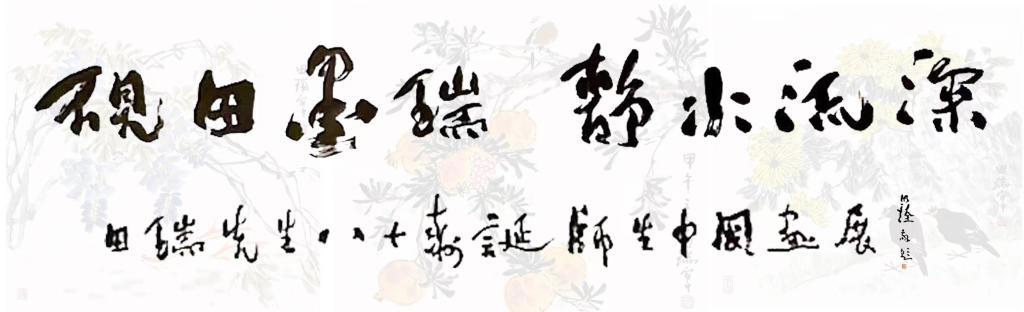 砚田墨瑞 静水流深
田瑞先生八十寿诞师生中国画展